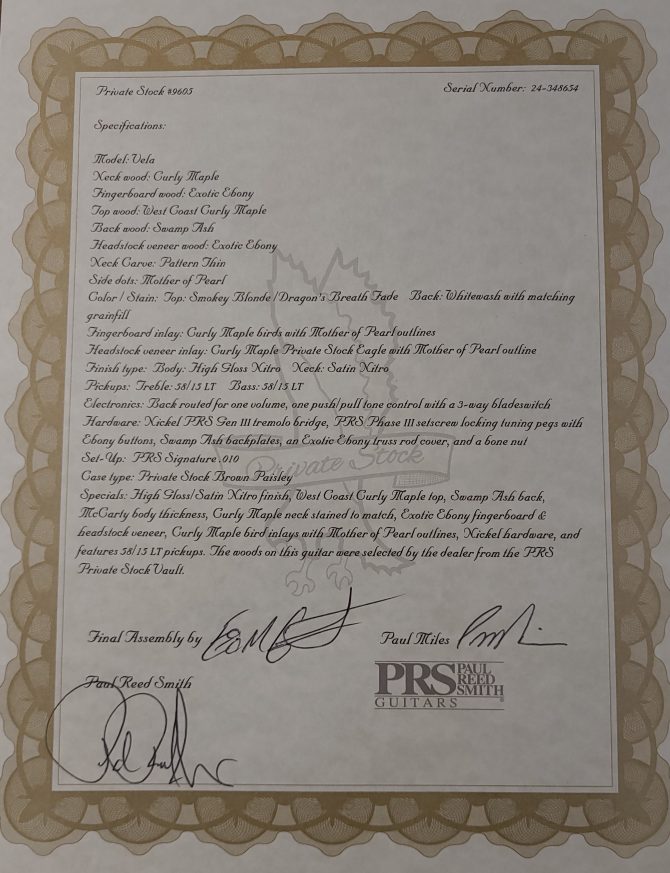 Private Stock #9605
Serial Number: 24-348654
Specifications:
Model: Vela
Neck wood: Curly Maple
Fingerboard wood: Exotic Ebony
Top wood: West Coast Curly Maple
Back wood: Swamp Ash
Headstock veneer wood: Exotic Ebony
Neck Carve: Pattern Thin
Side dots: Mother of Pearl
Color / Stain: Top: Smokey Blonde / Dragon's Breath Fade Back: Whitewash with matching
grainfill
Fingerboard inlay: Curly Maple birds with Mother of Pearl outlines
Headstock veneer inlay: Curly Maple Private Stock Eagle with Mother of Pearl outline
Finish type: Body: High Gloss Nitro Neck: Satin Nitro
Pickups: Treble: 58/15 LT Bass: 58/15 LT
Electronics: Back routed for one volume, one push/pull tone control with a 3-way bladeswitch
Hardware: Nickel PRS Gen III tremolo bridge, PRS Phase III setscrew locking tuning pegs with
Ebony buttons, Swamp Ash backplates, an Exotic Ebony truss rod cover, and a bone nut
Set-Up: PRS Signature .010
Private Stock
Case type: Private Stock Brown Paisley
Specials: High Gloss/Satin Nitro finish, West Coast Curly Maple top, Swamp Ash back,
McCarty body thickness, Curly Maple neck stained to match, Exotic Ebony fingerboard &
headstock veneer, Curly Maple bird inlays with Mother of Pearl outlines, Nickel hardware, and
features 58/15 LT pickups. The woods on this guitar were selected by the dealer from the PRS
Private Stock Vault.
Final Assembly by
Paul Miles
Paul Reed Smith
PRS PAUL
REED
SMITH
GUITARS